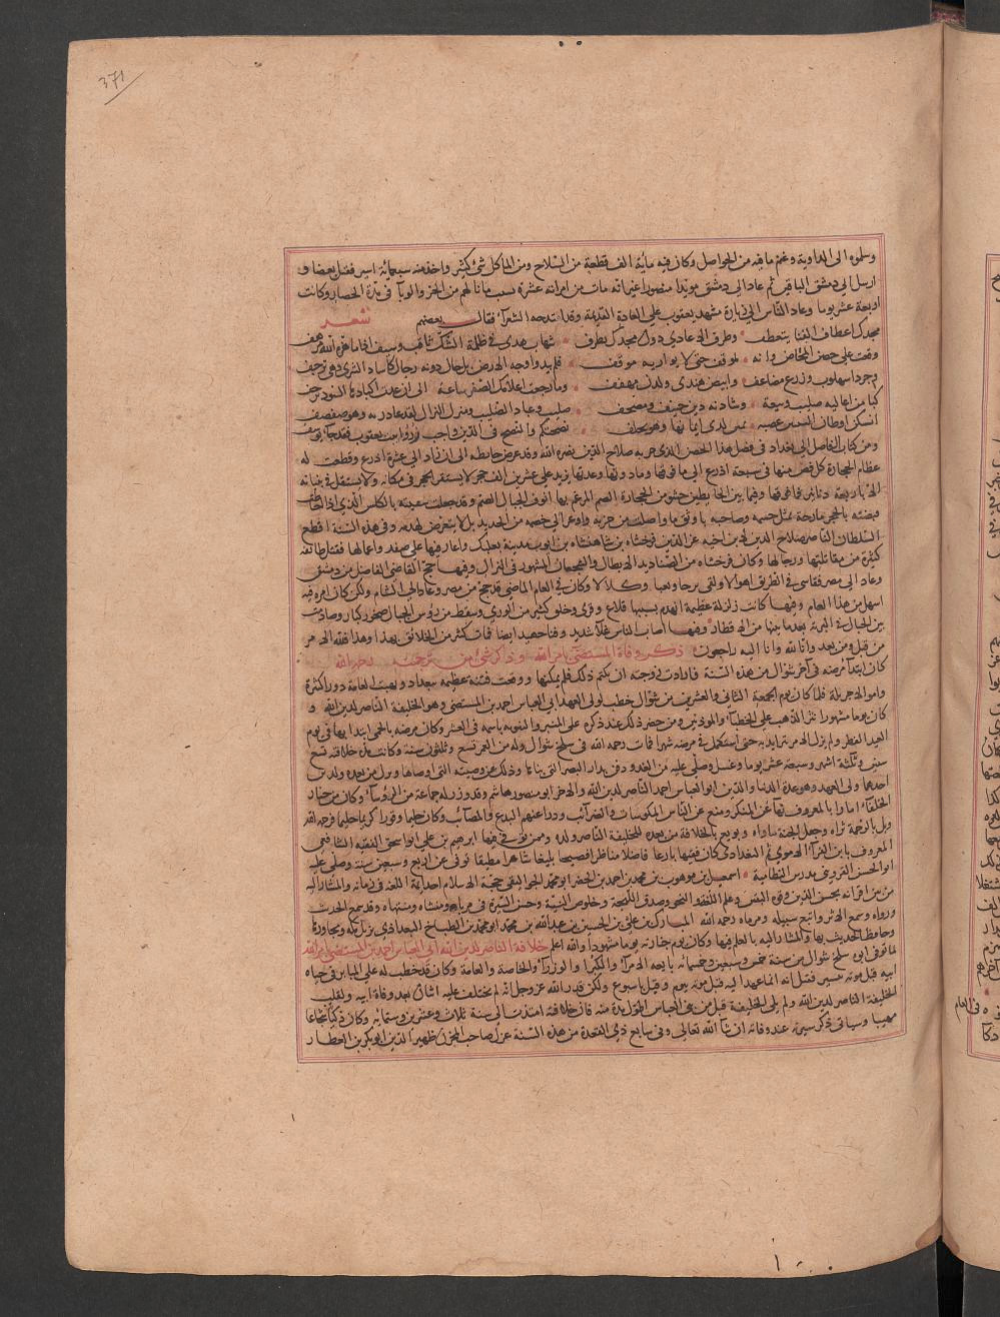 371
وسلموه الى الداوية وغنم ما فيه من الحواصل وكان فيه مائة الف قطعة من السلاح ومن المأكل شئ كثير واخذ منه سبعمائة اسير فقتل بعضا و
ارسل الى دمشق الباقين ثم عاد الى دمشق مؤيدا منصورا غير انه مات من امرائه عشرة بسبب ما نالهم من الحر والوبآ فى مدة الحصار وكانت
اربعة عشر يوما وعاد الناس الى زيارة مشهد يعقوب على العادة القديمة وقد امتدحه الشعرآ فقال بعضهم شعر
بجدك اعطاف القنا يتعطف وطرف الاعادى دون مجدك يطرف شهاب هدى فى ظلمة الشك ثاقب وسيف اذا ما هزه الله مرهف
وقفت على حصن المخاض وانه لموقف حق لا يوازيه موقف فلم يبد وجه الارض بل حال دونه رجال كآساد الشرى وهى ترجف
وجرد سلهوب ودرع مضاعف وابيض هندى ولدن مهفهف وما رجعت اعلامك الصفر ساعة الى ان غدت اكبادها السود ترجف
كبا من اعاليه صليب وبيعة وشاد به دين حنيف ومصحف صليب وعباد الصليب ومنزل النزال لقد غادرته وهو صفصف
اتسكن اوطان النبيين عصبة تمين لدى ايمانها وهو تحلف نصحتكم والنصح فى الدين واجب ذروا بيت يعقوب فقد جآ يوسف
ومن كتاب الفاضل الى بغداد فى فضل هذا الحصن الذى خربه صلاح الدين نصره الله وقد عرض حايطه الى ان زاد الى عشرة اذرع وقطعت له
عظام الحجارة كل فص منها فى سبعة اذرع الى ما فوقها وما دونها وعدتها تزيد على عشرين الف حجر لا يستقر الحجر فى مكانه ولا يستقل فى بنيانه
الا باربعة دنانير فما فوقها وفيما بين الحايطين حشو من الحجارة الصم المرغم بها انوف الجبال الشم وقد جعلت سقيته بالكلس الذى اذا احاطت
قبضته بالحجر مازجه بمثل جسمه وصاحبه باوثق واصلب من جرمه واوعز الى خصمه من الحديد بان لا يتعرض لهدمه وفى هذه السنة اقطع
السلطان الناصر صلاح الدين لابن اخيه عز الدين فرخشاه بن شاهنشاه بن ايوب مدينة بعلبك واغار فيها على صفد واعمالها فقتل طائفة
كثيرة من مقاتلتها ورجالها وكان فرخشاه من الصناديد الابطال والشجعان المشهور فى النزال وفيها حج القاضى الفاضل من دمشق
وعاد الى مصر فقاسى فى الطريق اهوالا ولقى برحا وتعبا وكلالا وكان فى العام الماضى قد حج من مصر وعاد الى الشام ولكن كان امره فيه
اسهل من هذا العام وفيها كانت زلزلة عظيمة انهدم بسببها قلاع وقرى وخلق كثير من الورى وسقط من رؤس الجبال صخور كبار وصادمت
بين الجبال فى البرية بعد ما بينها من الاقطار وفيها اصاب الناس غلآ شديد وفناء جهيد ايضا فمات كثير من الخلائق بهذا وهذا فلله الامر
من قبل ومن بعد وانا لله وانا اليه راجعون ذكر وفاة المستضئ بامر الله وذكر شئ من ترجمته رحمه الله
كان ابتدآ مرضه فى آخر شوال من هذه السنة فارادت زوجته ان تكتم ذلك فلم يمكنها ووقعت فتنة عظيمة ببغداد ونهبت العامة دورا كثيرة
واموالا جزيلة فلما كان يوم الجمعة الثانى والعشرين من شوال خطب لولى العهد ابى العباس احمد بن المستضئ وهو الخليفة الناصر لدين الله و
كان يوما مشهودا نثر الذهب على الخطبآ والموذنين ومن حضر ذلك عند ذكره على المنبر والتنويه باسمه فى العشر وكان مرضه بالحمى ابتدا بها فى يوم
العيد الفطر ولم يزل الامر يتزايد به حتى استكمل فى مرضه شهرا فمات رحمه الله فى سلخ شوال وله من العمر تسع وثلاثون سنة وكانت مدة خلافته تسع
سنين وثلثة اشهر وسبعة عشر يوما وغسل وصلى عليه من الغد ودفن بدار البصر التى بناها وذلك عن وصيته التى اوصاها وترك من بعده ولدين
احدهما ولى العهد وهو عدة الدنيا والدين ابو العباس احمد الناصر لدين الله والاخر ابو منصور هاشم وقد وزر له جماعة من الرؤسآ وكان من خيار
الخلفآ امارا بالمعروف نهآ عن المنكر ومنع عن الناس المكوسات والضرآئب ودرأ عنهم البدع والمصآئب وكان حليما وقورا كريما فرحمه الله
وبل بالرحمة ثراه وجعل الجنة مأواه وبويع بالخلافة من بعده للخليفة الناصر ولده وممن توفى فيها ابرهيم بن على ابو اسحق الفقيه الشافعى
المعروف بابن الفرآ الاموى ثم البغدادى كان فقيها بارعا فاضلا مناظرا فصيحا بليغا شاعرا مطبقا توفى عن اربع وسبعين سنة وصلى عليه
ابو الحسن القزوينى مدرس النظامية اسمعيل بن موهوب بن محمد بن احمد بن الخضر ابو محمد الجواليقى حجة الاسلام احد ايمة اللغة فى زمانه والمشار اليه
من بين اقرانه بحسن الدين وقوة اليقين وعلم اللغة والنحو وصدق اللهجة وخلوص النية وحسن السيرة فى مرباه ومنشاه ومنتهاه وقد سمع الحديث
ورواه وسمع الاثر واتبع سبيله ومرماه رحمه الله المبارك بن على بن الحسين بن عبد الله بن محمد ابو محمد بن الطباخ البغدادى نزيل مكة ومجاورها
وحافظ الحديث بها والمشار اليه بالعلم فيها وكان يوم جنازته يوما مشهودا والله اعلم خلافة الناصر لدين الله ابى العباس احمد بن المستضئ بامر الله
لما توفى ابوه سلخ شوال من سنة خمس وسبعين وخمسمائة بايعه الامرآ والكبرآ والوزرآ والخاصة والعامة وكان قد خطب له على المنابر فى حياة
ابيه قبل موته بيسير فقيل انه انما عهد اليه قبل موته بيوم وقيل باسبوع ولكن قدر الله عز وجل انه لم يختلف عليه اثنان بعد وفاة ابيه ولقب
الخليفة الناصر لدين الله ولم يل الخلافة قبل من بنى العباس اطول مدة منه فان خلافته امتدت الى سنة ثلاث وعشرين وستمائة وكان ذكيا شجاعا
مهيبا وسياتى ذكر سيرته عند وفاته ان شآ الله تعالى وفى سابع ذى القعدة من هذه السنة عزل صاحب المخزن ظهير الدين ابو بكر بن العطار